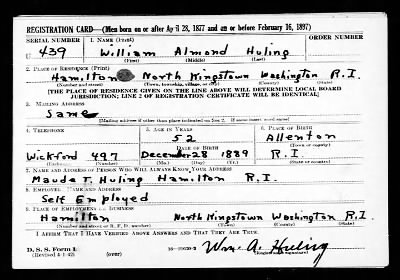 REGISTRATION CARD—(Men born on or after April 28, 1877 and on or before February 16, 1897)
SERIAL NUMBER 1. NAME (Print) ORDER NUMBER
U 439 William Almond Huling
(First) (Middle) (Last)
2. PLACE OF RESIDENCE (Print)
Hamilton North Kingstown Washington R.I.
(Number and street) (Town, township, village, or city) (County) (State)
[THE PLACE OF RESIDENCE GIVEN ON THE LINE ABOVE WILL DETERMINE LOCAL BOARD
JURISDICTION; LINE 2 OF REGISTRATION CERTIFICATE WILL BE IDENTICAL]
3. MAILING ADDRESS
Same
[Mailing address if other than place indicated on line 2. If same insert word same]
4. TELEPHONE 5. AGE IN YEARS 6. PLACE OF BIRTH
52 Allenton
DATE OF BIRTH (Town or county)
Wickford 497 December 28 1889 R.I.
(Exchange) (Number) (Mo.) (Day) (Yr.) (State or country)
7. NAME AND ADDRESS OF PERSON WHO WILL ALWAYS KNOW YOUR ADDRESS
Maude F. Huling Hamilton R.I.
8. EMPLOYER'S NAME AND ADDRESS
Self Employed
9. PLACE OF EMPLOYMENT OR BUSINESS
Hamilton North Kingstown Washington R.I.
(Number and street or R. F. D. number) (Town) (County) (State)
I AFFIRM THAT I HAVE VERIFIED ABOVE ANSWERS AND THAT THEY ARE TRUE.
D. S. S. Form 1 Wm. A. Huling
(Revised 4-1-42) (over) (Registrant's signature)